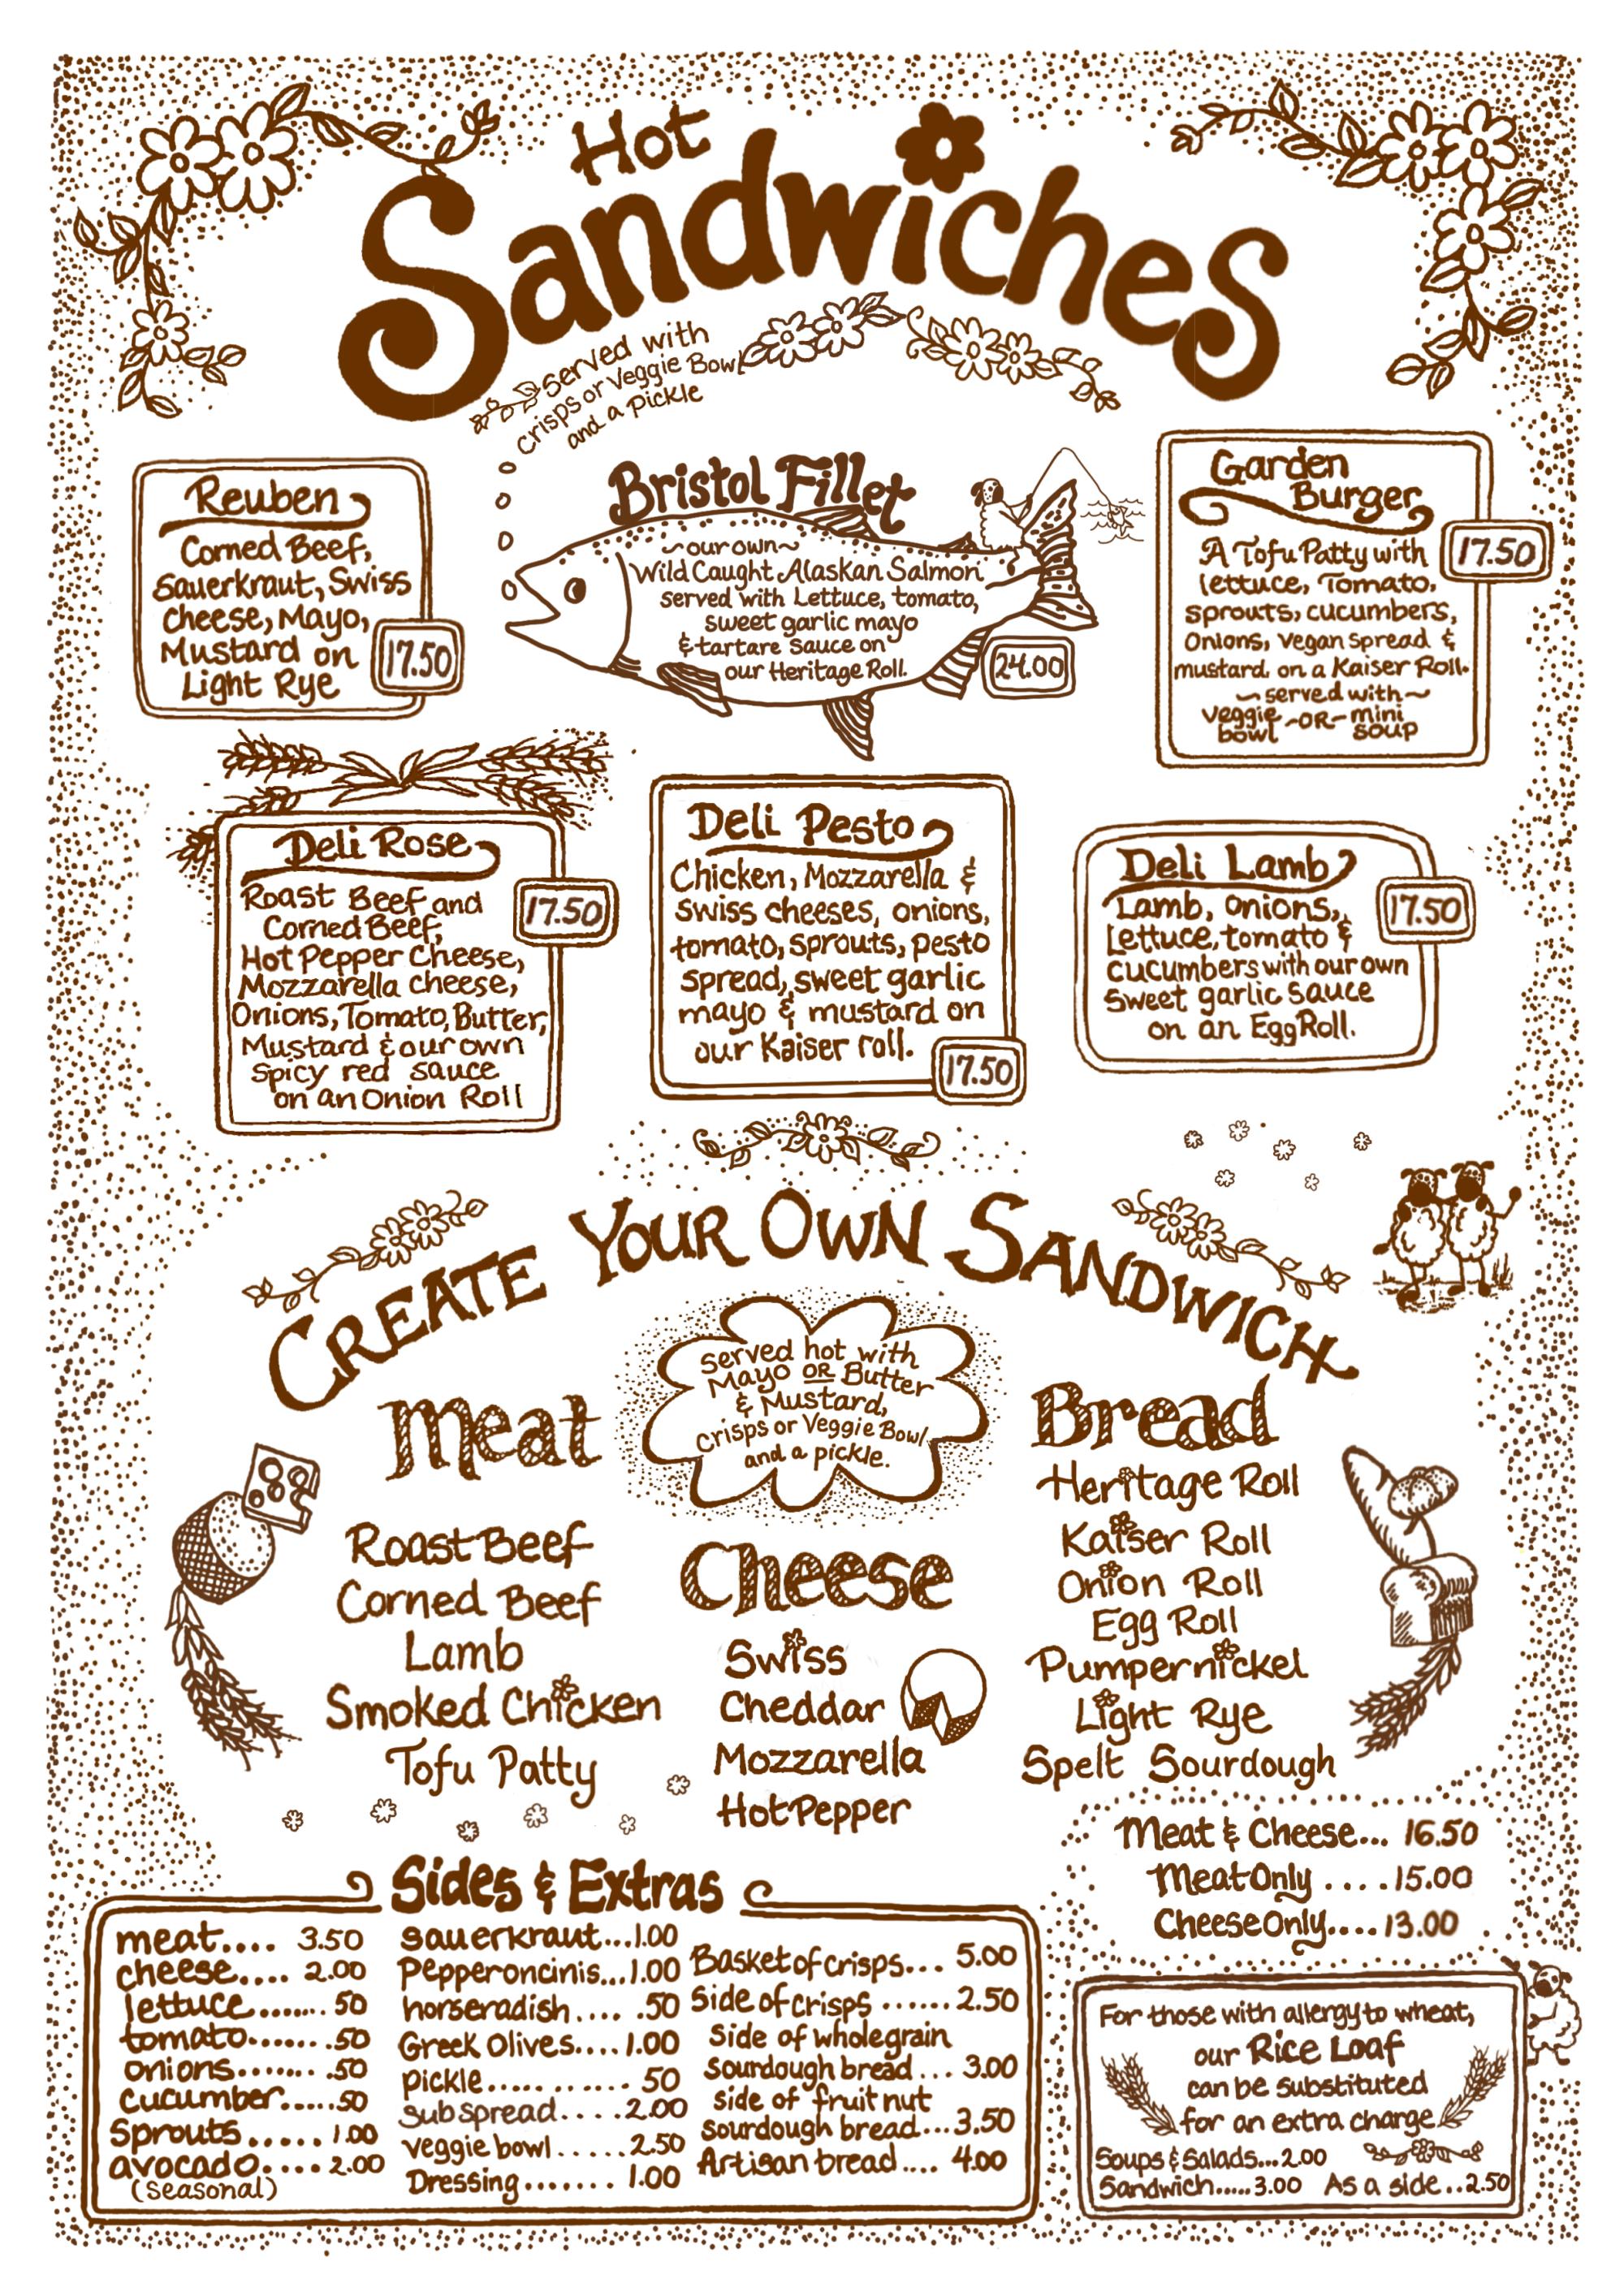 Hot
Sandwiches
served with
crisps or Veggie Bowl
and a Pickle
Reuben
Corned Beef,
Sauerkraut, Swiss
Cheese, Mayo,
Mustard on
Light Rye
17.50
Bristol Fillet
~our own~
Wild Caught Alaskan Salmon
served with Lettuce, tomato,
sweet garlic mayo
& tartare sauce on
our Heritage Roll.
24.00
Garden
Burger
A Tofu Patty with
lettuce, Tomato,
sprouts, cucumbers,
Onions, vegan spread &
mustard, on a Kaiser Roll.
~served with~
veggie bowl -OR- mini soup
17.50
Deli Rose
Roast Beef and
Corned Beef,
Hot Pepper Cheese,
Mozzarella cheese,
Onions, Tomato, Butter,
Mustard & our own
Spicy red sauce
on an Onion Roll
17.50
Deli Pesto
Chicken, Mozzarella &
Swiss cheeses, onions,
tomato, sprouts, pesto
spread, sweet garlic
mayo & mustard on
our Kaiser roll.
17.50
Deli Lamb
Lamb, onions,
Lettuce, tomato &
cucumbers with our own
sweet garlic sauce
on an Egg Roll.
17.50
CREATE YOUR OWN SANDWICH
Served hot with
Mayo OR Butter
& Mustard,
Crisps or Veggie Bowl
and a pickle.
Meat
Roast Beef
Corned Beef
Lamb
Smoked Chicken
Tofu Patty
Cheese
Swiss
Cheddar
Mozzarella
Hot Pepper
Bread
Heritage Roll
Kaiser Roll
Onion Roll
Egg Roll
Pumpernickel
Light Rye
Spelt Sourdough
Meat & Cheese... 16.50
Meat Only ....15.00
Cheese Only....13.00
Sides & Extras
meat.... 3.50
cheese.... 2.00
lettuce....... 50
tomato....... .50
onions....... .50
cucumber......50
Sprouts ..... 1.00
avocado.... 2.00
(Seasonal)
sauerkraut...1.00
Pepperoncinis...1.00
horseradish.... .50
Greek Olives....1.00
pickle........... 50
sub spread....2.00
veggie bowl.....2.50
Dressing....... 1.00
Basket of crisps... 5.00
Side of crisps ......2.50
Side of wholegrain
sourdough bread... 3.00
side of fruit nut
sourdough bread...3.50
Artisan bread.... 4.00
For those with allergy to wheat,
our Rice Loaf
can be substituted
for an extra charge
Soups & Salads...2.00
Sandwich.....3.00 As a side...2.50